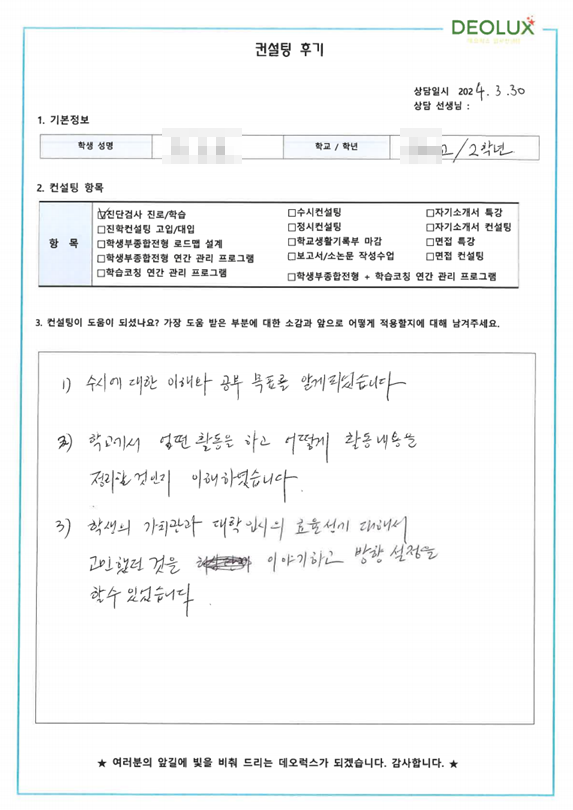 DEOLUX
컨설팅 후기
상담일시 2024.3.30
상담 선생님 :
1. 기본정보
학생 성명 학교 / 학년 고/2학년
2. 컨설팅 항목
항 목
☑진단검사 진로/학습 □수시컨설팅 □자기소개서 특강
□진학컨설팅 고입/대입 □정시컨설팅 □자기소개서 컨설팅
□학생부종합전형 로드맵 설계 □학교생활기록부 마감 □면접 특강
□학생부종합전형 연간 관리 프로그램 □보고서/소논문 작성수업 □면접 컨설팅
□학습코칭 연간 관리 프로그램 □학생부종합전형 + 학습코칭 연간 관리 프로그램
3. 컨설팅이 도움이 되셨나요? 가장 도움 받은 부분에 대한 소감과 앞으로 어떻게 적용할지에 대해 남겨주세요.
1) 수시에 대한 이해와 공부 목표를 알게되었습니다
2) 학교에서 어떤 활동을 하고 어떻게 활동내용을
정리할것인지 이해하였습니다.
3) 학생의 가치관과 대학입시의 대해서
고민했던 것을 이야기하고 방향 설정을
할수 있었습니다.
★ 여러분의 앞길에 빛을 비춰 드리는 데오럭스가 되겠습니다. 감사합니다. ★